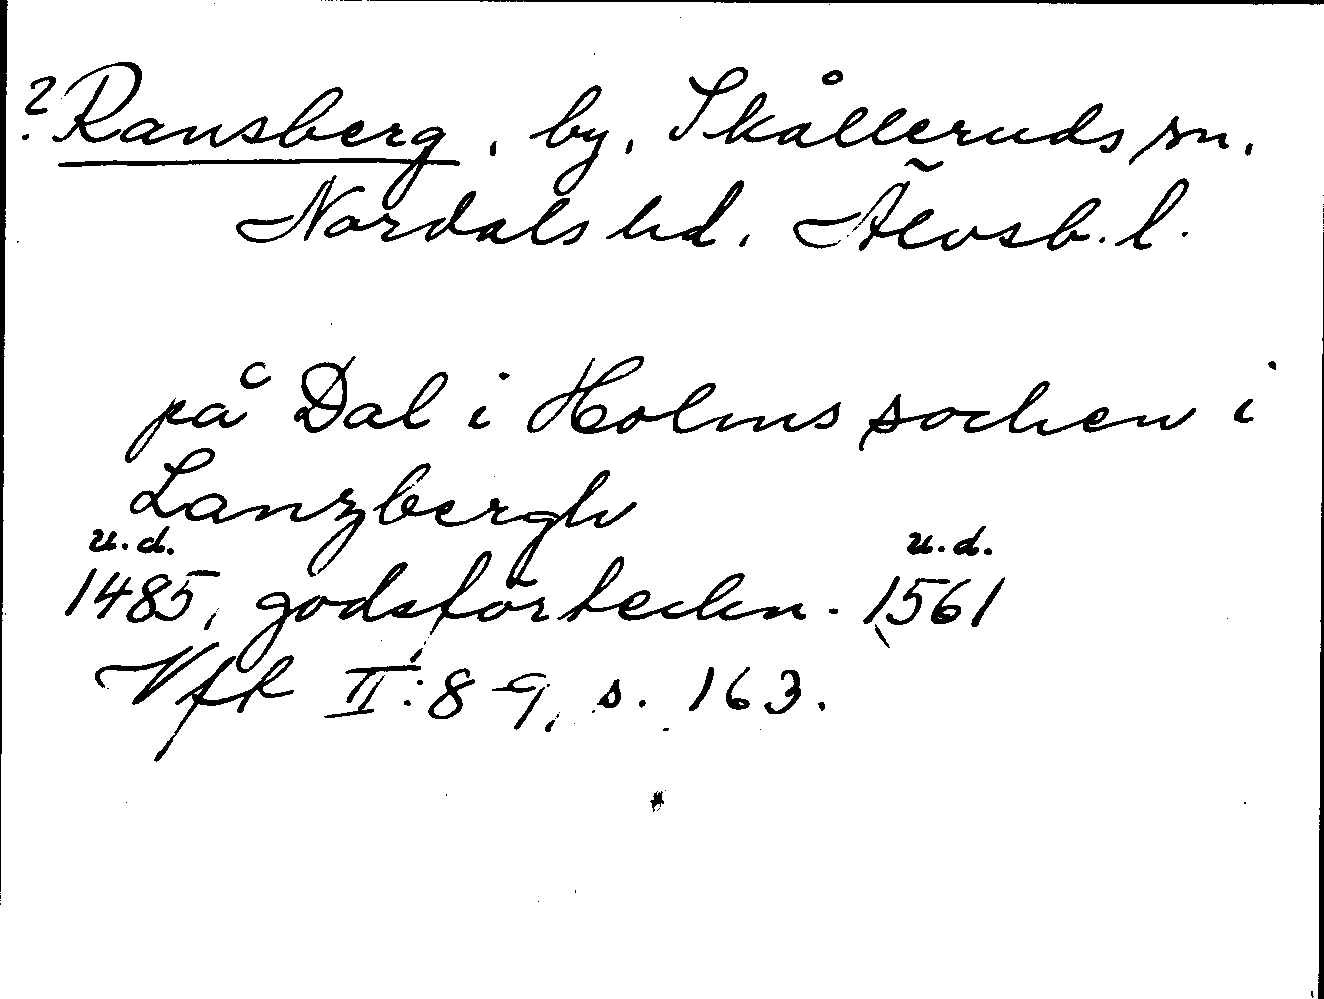 ? Ransberg, by, Skålleruds sn.
Nordals hd. Älvsb. l.
på Dal i Holms sochen i
Lanzbergh
u.d. u.d.
1485, godsförteckn. 1561
Vfk II:8-9, s. 163.